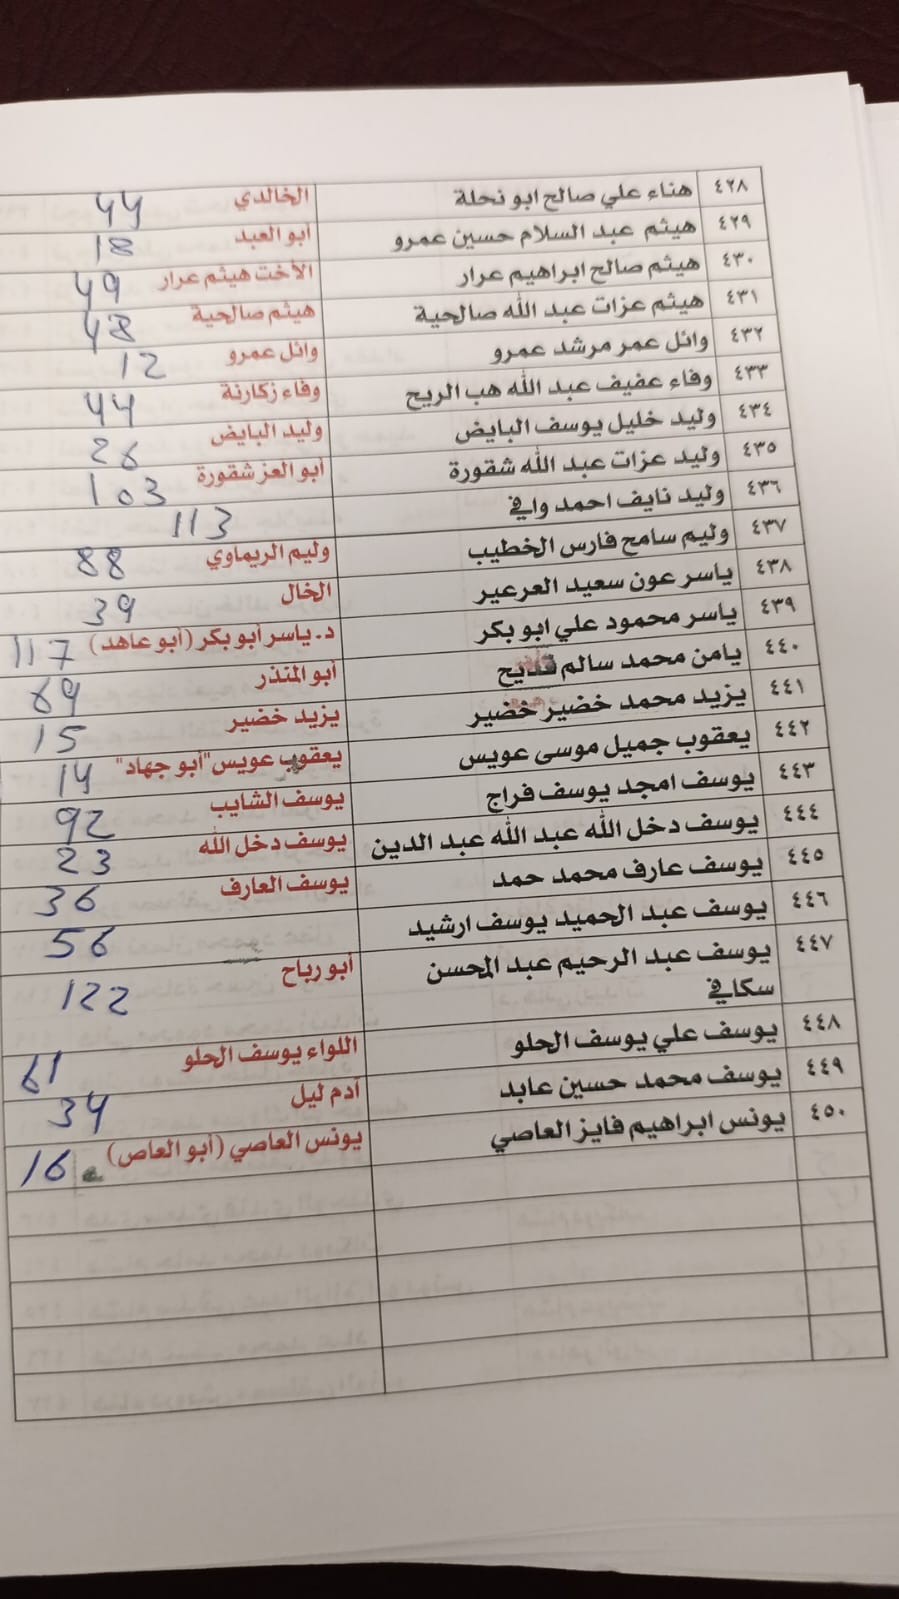 ٤٢٨ هناء علي صالح ابو نحلة الخالدي 44
٤٢٩ هيثم عبد السلام حسين عمرو أبو العبد 18
٤٣٠ هيثم صالح ابراهيم عرار الأخت هيثم عرار 49
٤٣١ هيثم عزات عبد الله صالحية هيثم صالحية 48
٤٣٢ وائل عمر مرشد عمرو وائل عمرو 12
٤٣٣ وفاء عفيف عبد الله هب الريح وفاء زكارنة 44
٤٣٤ وليد خليل يوسف البايض وليد البايض 26
٤٣٥ وليد عزات عبد الله شقورة أبو العز شقورة 103
٤٣٦ وليد نايف احمد وافي 113
٤٣٧ وليم سامح فارس الخطيب وليم الريماوي 88
٤٣٨ ياسر عون سعيد العرعير الخال 39
٤٣٩ ياسر محمود علي ابو بكر د. ياسر أبو بكر (أبو عاهد) 117
٤٤٠ يامن محمد سالم قديح أبو المنذر 69
٤٤١ يزيد محمد خضير خضير يزيد خضير 15
٤٤٢ يعقوب جميل موسى عويس يعقوب عويس "أبو جهاد" 14
٤٤٣ يوسف امجد يوسف فراج يوسف الشايب 92
٤٤٤ يوسف دخل الله عبد الله عبد الدين يوسف دخل الله 23
٤٤٥ يوسف عارف محمد حمد يوسف العارف 36
٤٤٦ يوسف عبد الحميد يوسف ارشيد 56
٤٤٧ يوسف عبد الرحيم عبد المحسن أبو رباح 122
سكافي
٤٤٨ يوسف علي يوسف الحلو اللواء يوسف الحلو 61
٤٤٩ يوسف محمد حسين عابد آدم ليل 34
٤٥٠ يونس ابراهيم فايز العاصي يونس العاصي (أبو العاص) 16